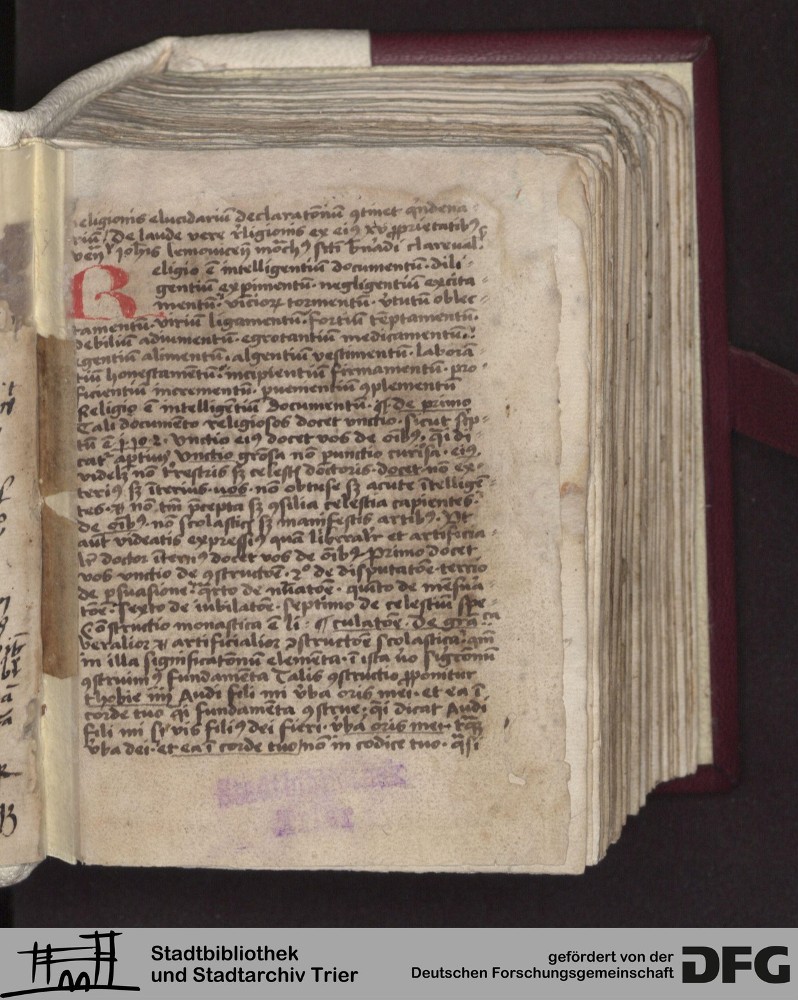 eligionis elucidariū declaratōnū ꝯtinet qͥndena
riū / De laude vere rͤligionis ex eiꝰ xv ꝓprietatibꝰ
Iohīs lemouiceñ clareual
eligio ē intelligentiū documentū · dili
gentiū exꝑimentū · negligentiū excita
R
mentū · viciorꝝ tormentū · vͬtutū oblec
tamentū · viriū ligamentū · fortiū tēptamentū ·
debiliū adiumentū · egrotantiū medicamentū ·
egentiū alimentū · algentiū vestimentū · laborā
tiū honestamentū · incipientiū firmamentū · pro
ficientiū incrementū · ꝑuenientiū ꝯplementū
Religio ē intelligentiū documentū · de primo
Tali documēto religiosos docet vnctio · sicut sc̄p
tū ē · vnctio eiꝰ docet vos de oībꝰ · qͣi di
cat aptiꝰ vnctio grōsa nō punctio curīsa · eiꝰ
videlꝫ nō trͬestris sꝫ celestꝭ doctoris · docet nō ex
teriꝰ sꝫ īteriꝰ · vos · nō obtuse sꝫ acute ītelligē
tes · ⁊ nō tm̄ p̄cepta sꝫ ꝯsilia celestia capientes ·
de oībꝰ · nō scolasticꝭ sꝫ manifestis artibꝰ · Vt
aūt videatis expressiꝰ quā liberalr̄ et artificia
lr̄ doctor īternꝰ docet vos de oībꝰ Primo docet
vos vnctio de ꝯstructōe · 2º de disputatōe · tercio
de ꝑsuasione · qͣrto de nūatōe · quīto de mēsura
tōe · sexto de iubilatōe · septimo de celestiū spe
Cōstructio monastica ē li culatōe · De gͣa
beralior ⁊ artificialior ꝯstructōe scolastica · qm̄
in illa significationū elemēta · ī ista vͦo
ꝯstruimꝰ fundamēta Talis ꝯstructio ꝓponitur
thobie iiij Audi fili mi vͬba oris mei · et ea ī
corde tuo qͣi fundamēta ꝯstrue · qͣi dicat Audi
fili mi si vis filiꝰ dei fieri · vͬba oris mei · tāqͣꝫ
vͬba dei · et ea ī corde tuo / nō in codice tuo · qͣsi
Stadtbibliothek
Trier
Stadtbibliothek
und Stadtarchiv Trier
gefördert von der
Deutschen Forschungsgemeinschaft
DFG